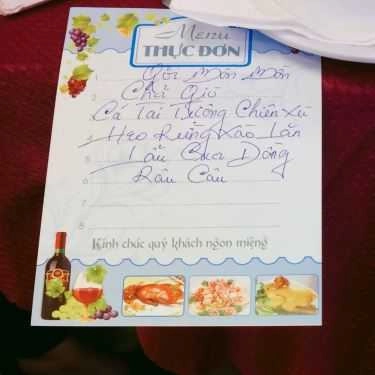 Menu
THỰC ĐƠN
1 Gỏi Món Món
2 Chả Giò
3 Cá Tai Tượng Chiên Xù
4 Heo Rừng Xào Lăn
5 Lẩu Cua Đồng
6 Rau Câu
7
8
Kính chúc quý khách ngon miệng